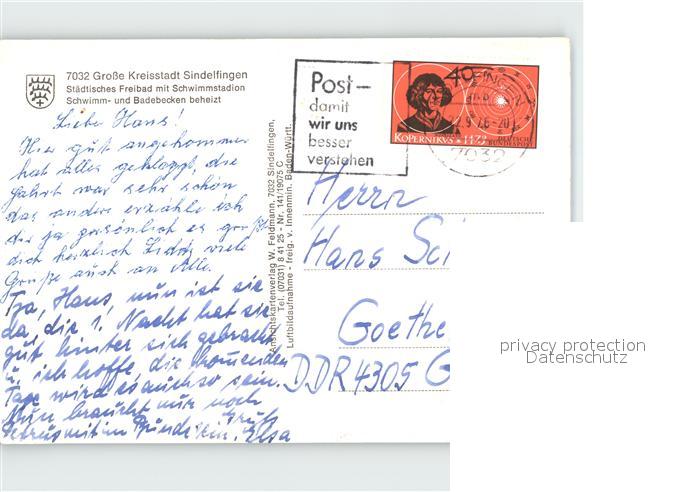 7032 Große Kreisstadt Sindelfingen
Städtisches Freibad mit Schwimmstadion
Schwimm- und Badebecken beheizt
Liebe Hans!
Hier gut angekommen
hat alles geklappt, die
Fahrt war sehr schön
das andere erzähle ich
dir ja persönlich es grüßt
dich herzlich viele
Grüße auch an Alle.
Tja, Hans, nun ist sie
da, die 1. Nacht hat sie
gut hinter sich gebracht
u. ich hoffe, die kommenden
Tage wird es auch so sein.
Nun braucht nur noch
Petrus mit im Bunde sein. Gruß
Elsa
Ansichtskartenverlag W. Feldmann, 7032 Sindelfingen,
Tel. (07031) 8 41 25 - Nr. 141/19075 C
Luftbildaufnahme - freig. v. Innenmin. Baden-Württ.
Post –
damit
wir uns
besser
verstehen
40
KOPERNIKUS · 1473
DEUTSCHE
BUNDESPOST
7032
Herrn
Hans Sci
Goethe
DDR 4305 G
privacy protection
Datenschutz